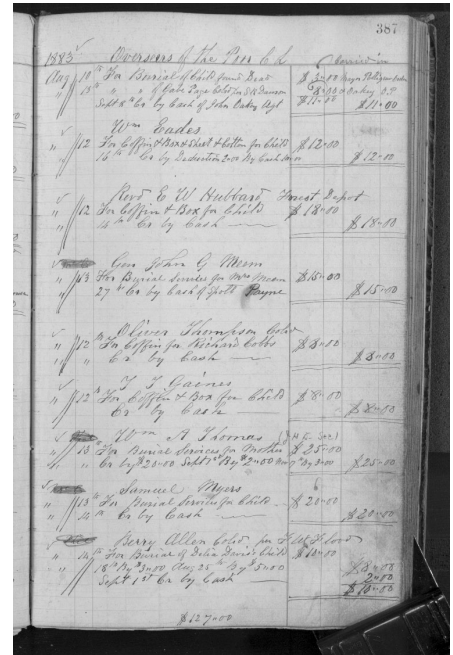 387
1883 Overseers of the Poor Cd
Aug 10 For Burial of Child found Dead $ 3=00
15 " of Gabe Page Cold for 8=00 Oakey O.P.
Sept 8th Cr by Cash of John Oakey Agt $11=00 $11=00
Wm Eades
" 12 For Coffin & Box & Sheet & Cotton for Child $12=00
Cr by Deduction 2=00 By Cash $12=00
Revd E W Hubbard Forest Depot
" 12 For Coffin & Box for Child $18=00
14th Cr by Cash $18=00
Gen John G Meem
" 13 For Burial Services for Mrs Meem $15=00
27th Cr by Cash of Payne $15=00
Oliver Thompson Cold
" 12 For Coffin for Richard Cobbs $8=00
" " Cr by Cash $8=00
T T Gaines
" 12 For Coffin & Box for Child $8=00
Cr by Cash $8=00
Wm A Thomas
" 13 For Burial Services for Mother $25=00
" " Cr by $20=00 Sept 1st By $2=00 By 3=00 $25=00
Samuel Myers
" 13 For Burial Services for Child $20=00
" 14 Cr by Cash $20=00
Berry Allen Cold for
14 For Burial of Delia Davis Child $10=00
18th By $3=00 Aug 25th By $5=00 $8=00
2=00
Sept 1st Cr by Cash $10=00
$127=00